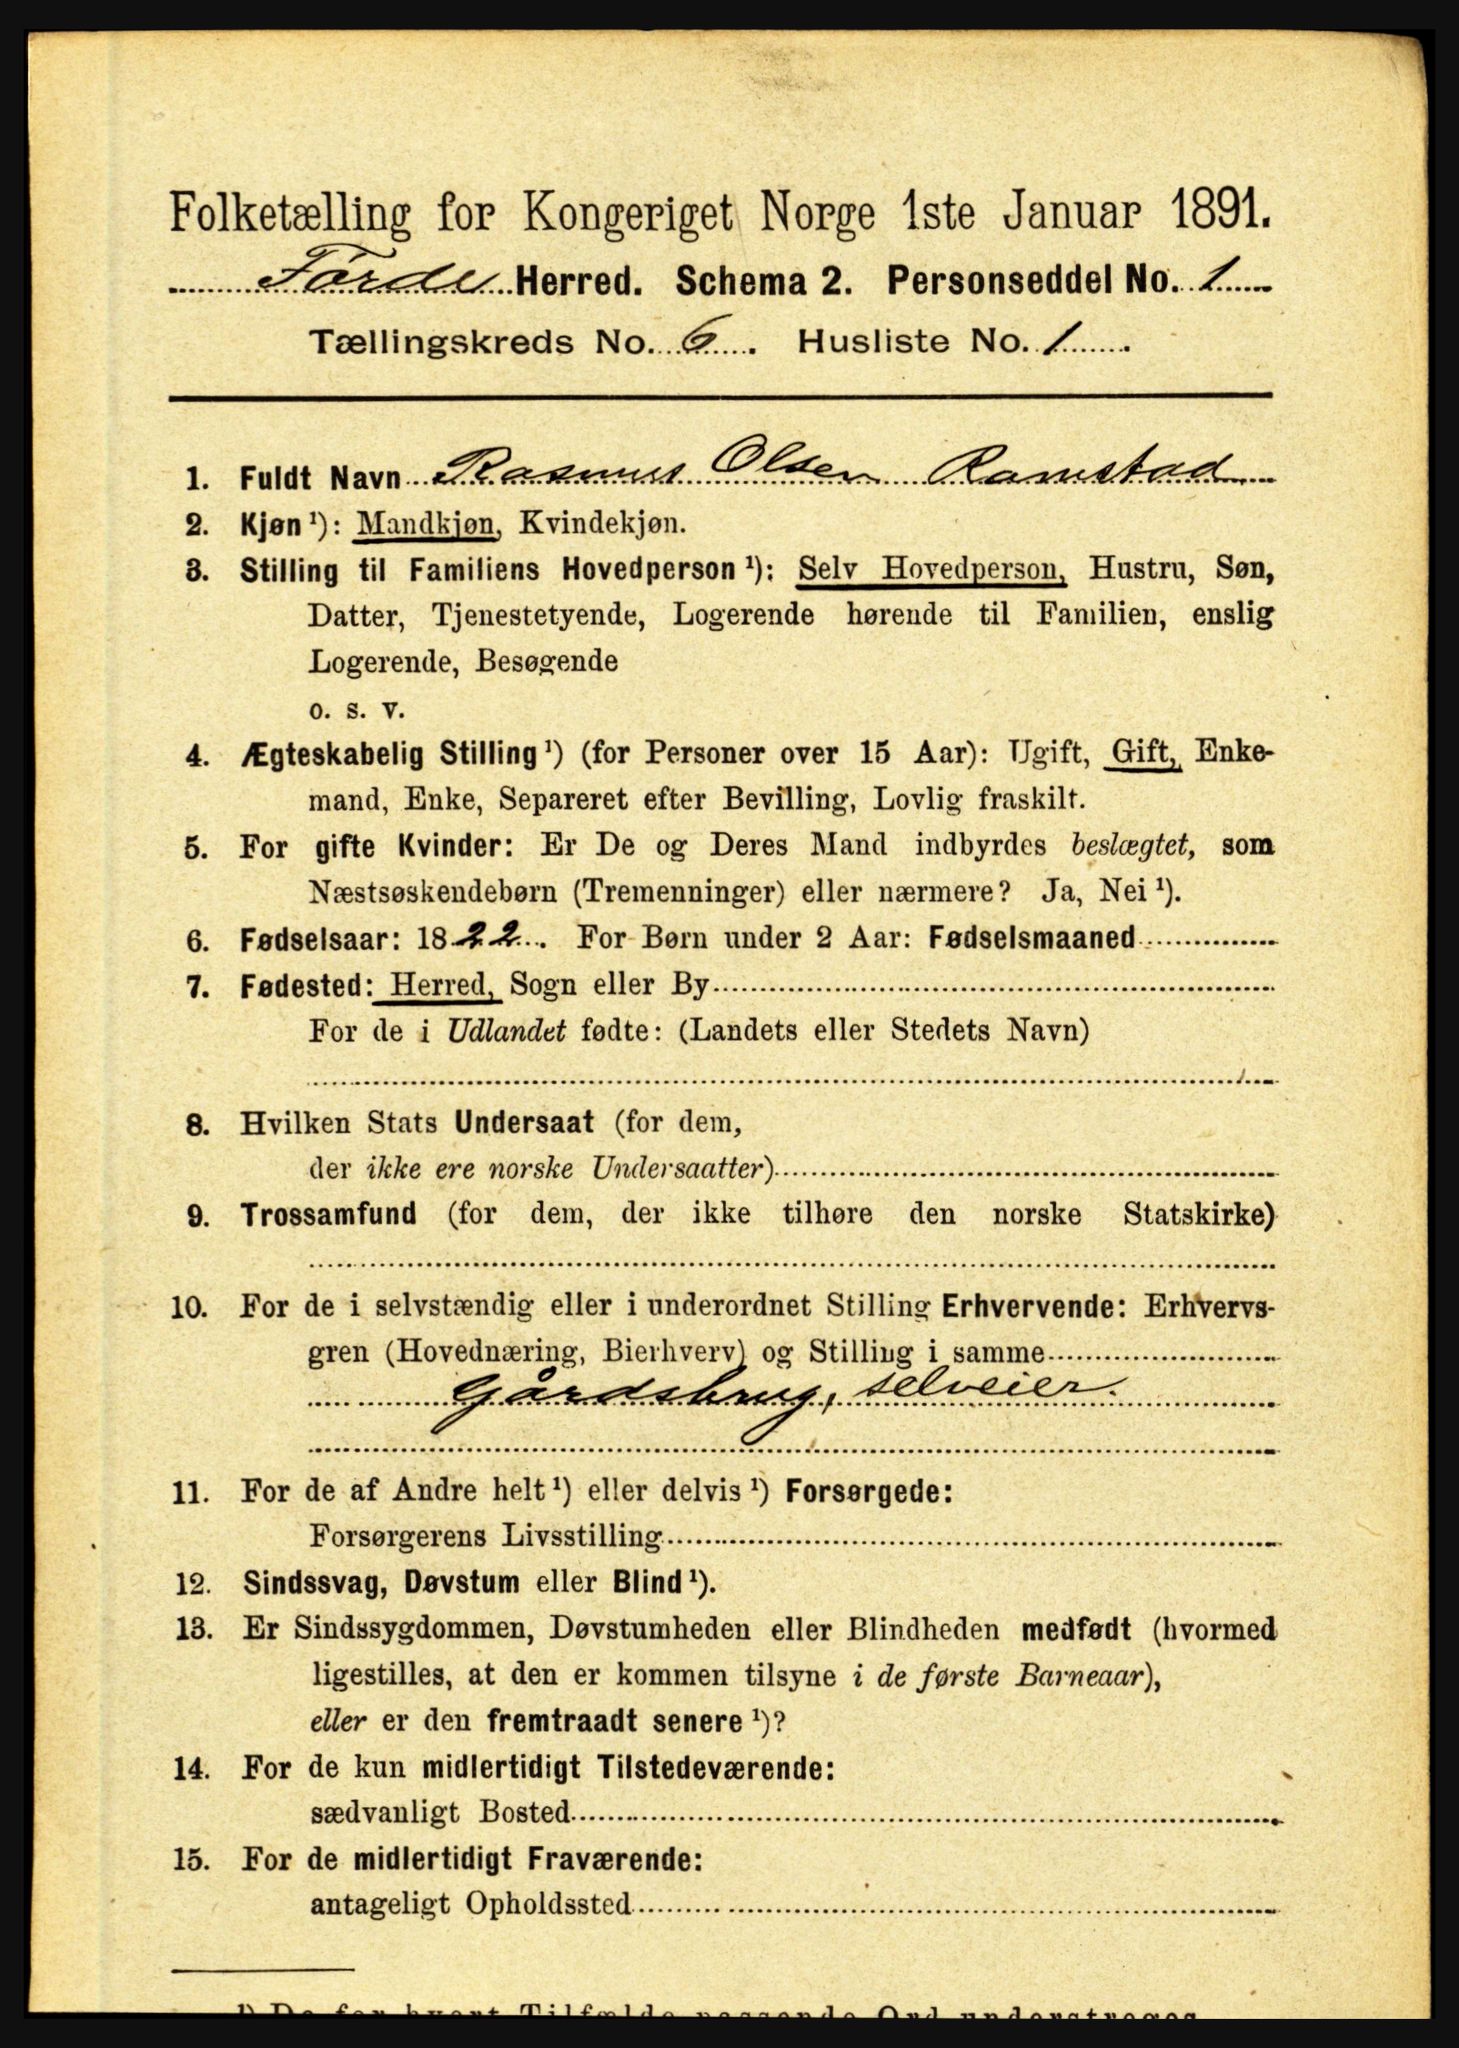 Folketælling for Kongeriget Norge 1ste Januar 1891.
Förde Herred. Schema 2. Personseddel No. 1
Tællingskreds No. 6. Husliste No. 1.
1. Fuldt Navn Rasmus Olsen Ramstad
2. Kjøn ¹): Mandkjøn, Kvindekjøn.
3. Stilling til Familiens Hovedperson ¹): Selv Hovedperson, Hustru, Søn,
Datter, Tjenestetyende, Logerende hørende til Familien, enslig
Logerende, Besøgende
o. s. v.
4. Ægteskabelig Stilling ¹) (for Personer over 15 Aar): Ugift, Gift, Enke-
mand, Enke, Separeret efter Bevilling, Lovlig fraskilt.
5. For gifte Kvinder: Er De og Deres Mand indbyrdes beslægtet, som
Næstsøskendebørn (Tremenninger) eller nærmere? Ja, Nei ¹).
6. Fødselsaar: 1822. For Børn under 2 Aar: Fødselsmaaned
7. Fødested: Herred, Sogn eller By
For de i Udlandet fødte: (Landets eller Stedets Navn)
8. Hvilken Stats Undersaat (for dem,
der ikke ere norske Undersaatter)
9. Trossamfund (for dem, der ikke tilhøre den norske Statskirke)
10. For de i selvstændig eller i underordnet Stilling Erhvervende: Erhvervs-
gren (Hovednæring, Bierhverv) og Stilling i samme
Gårdsbrug, selveier.
11. For de af Andre helt ¹) eller delvis ¹) Forsørgede:
Forsørgerens Livsstilling
12. Sindssvag, Døvstum eller Blind ¹).
13. Er Sindssygdommen, Døvstumheden eller Blindheden medfødt (hvormed
ligestilles, at den er kommen tilsyne i de første Barneaar),
eller er den fremtraadt senere ¹)?
14. For de kun midlertidigt Tilstedeværende:
sædvanligt Bosted
15. For de midlertidigt Fraværende:
antageligt Opholdssted
¹) De for hvert Tilfælde passende Ord understreges